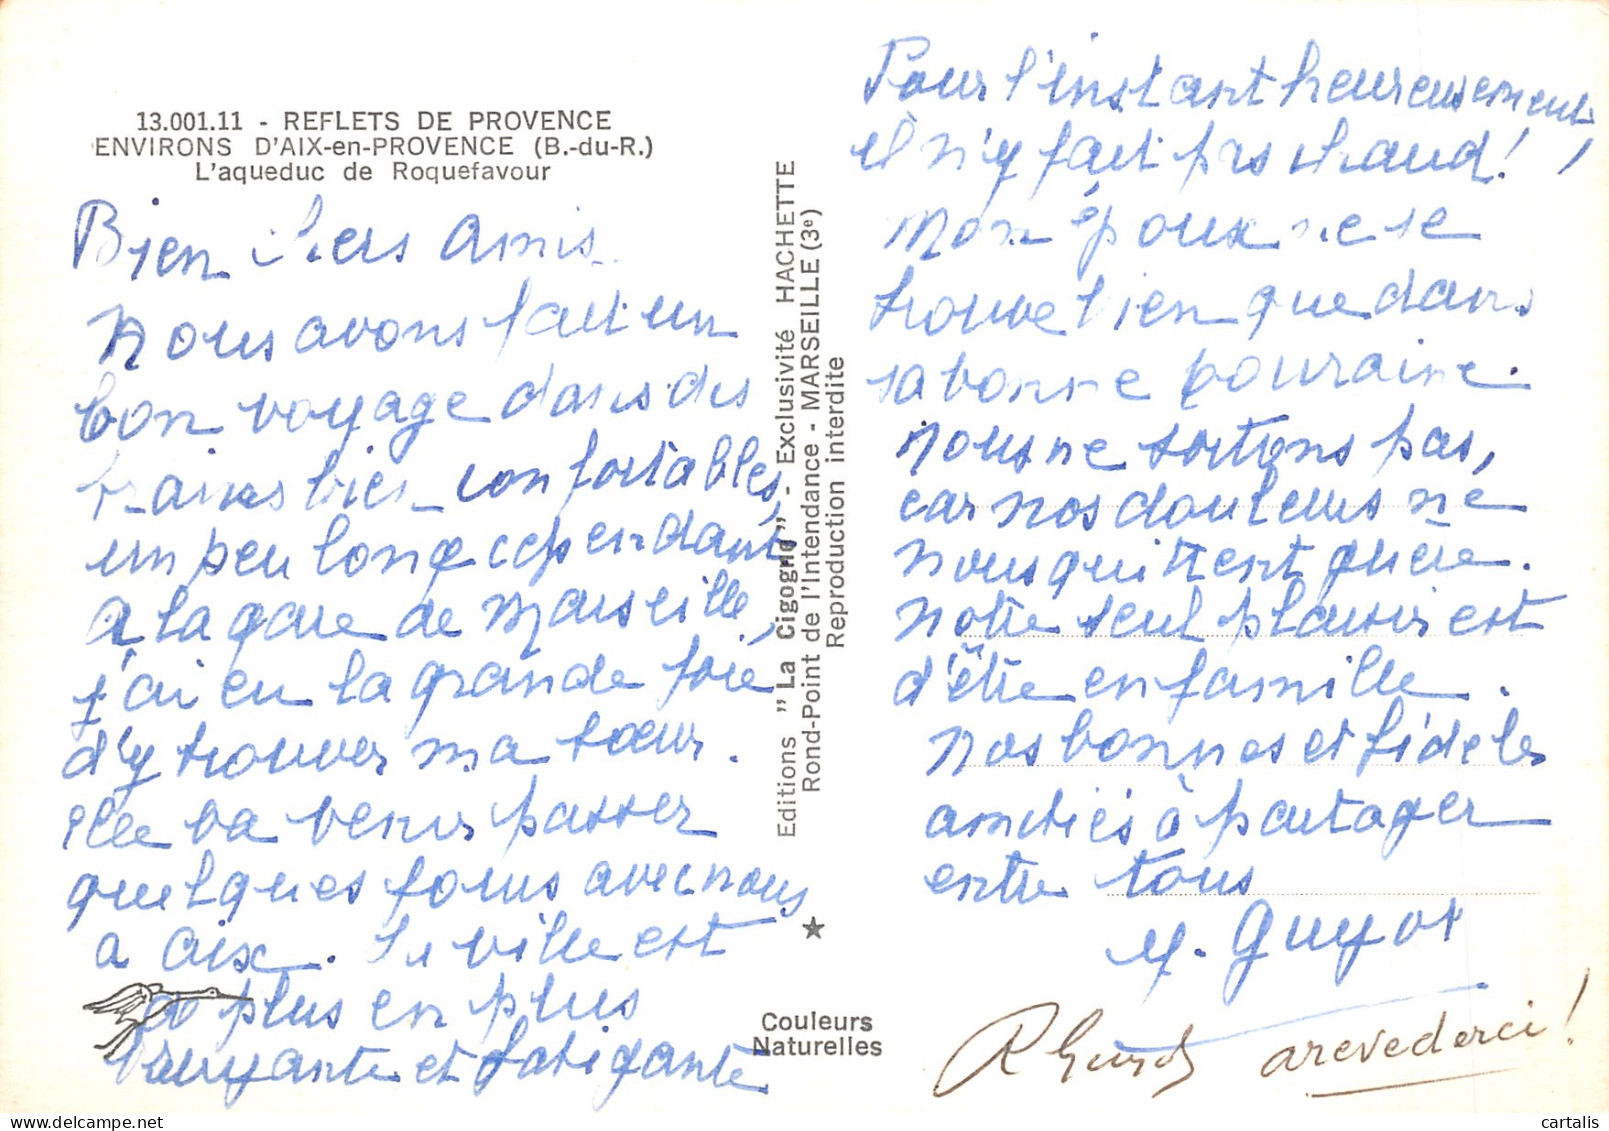 13.001.11 - REFLETS DE PROVENCE
ENVIRONS D'AIX-en-PROVENCE (B.-du-R.)
L'aqueduc de Roquefavour
Bien chers amis
Nous avons fait un
bon voyage dans des
trains bien confortables,
un peu long cependant
a la gare de Marseille,
j'ai eu la grande joie
d'y trouver ma sœur.
Elle va venir passer
quelques jours avec nous
a Aix. La ville est
de plus en plus
bruyante et fatigante
Editions "La Cigogne" - Exclusivité HACHETTE
Rond-Point de l'Intendance - MARSEILLE (3e)
Reproduction interdite
Couleurs
Naturelles
Pour l'instant heureusement
il n'y fait pas chaud!
Mon époux ne se
trouve bien que dans
sa bonne
nous ne sortons pas,
car nos douleurs ne
nous quittent guère.
Notre seul plaisir est
d'être en famille.
Nos bonnes et fidèles
amitiés à partager
entre tous
M. Guyot
R Guyot arevederci!
cartalis